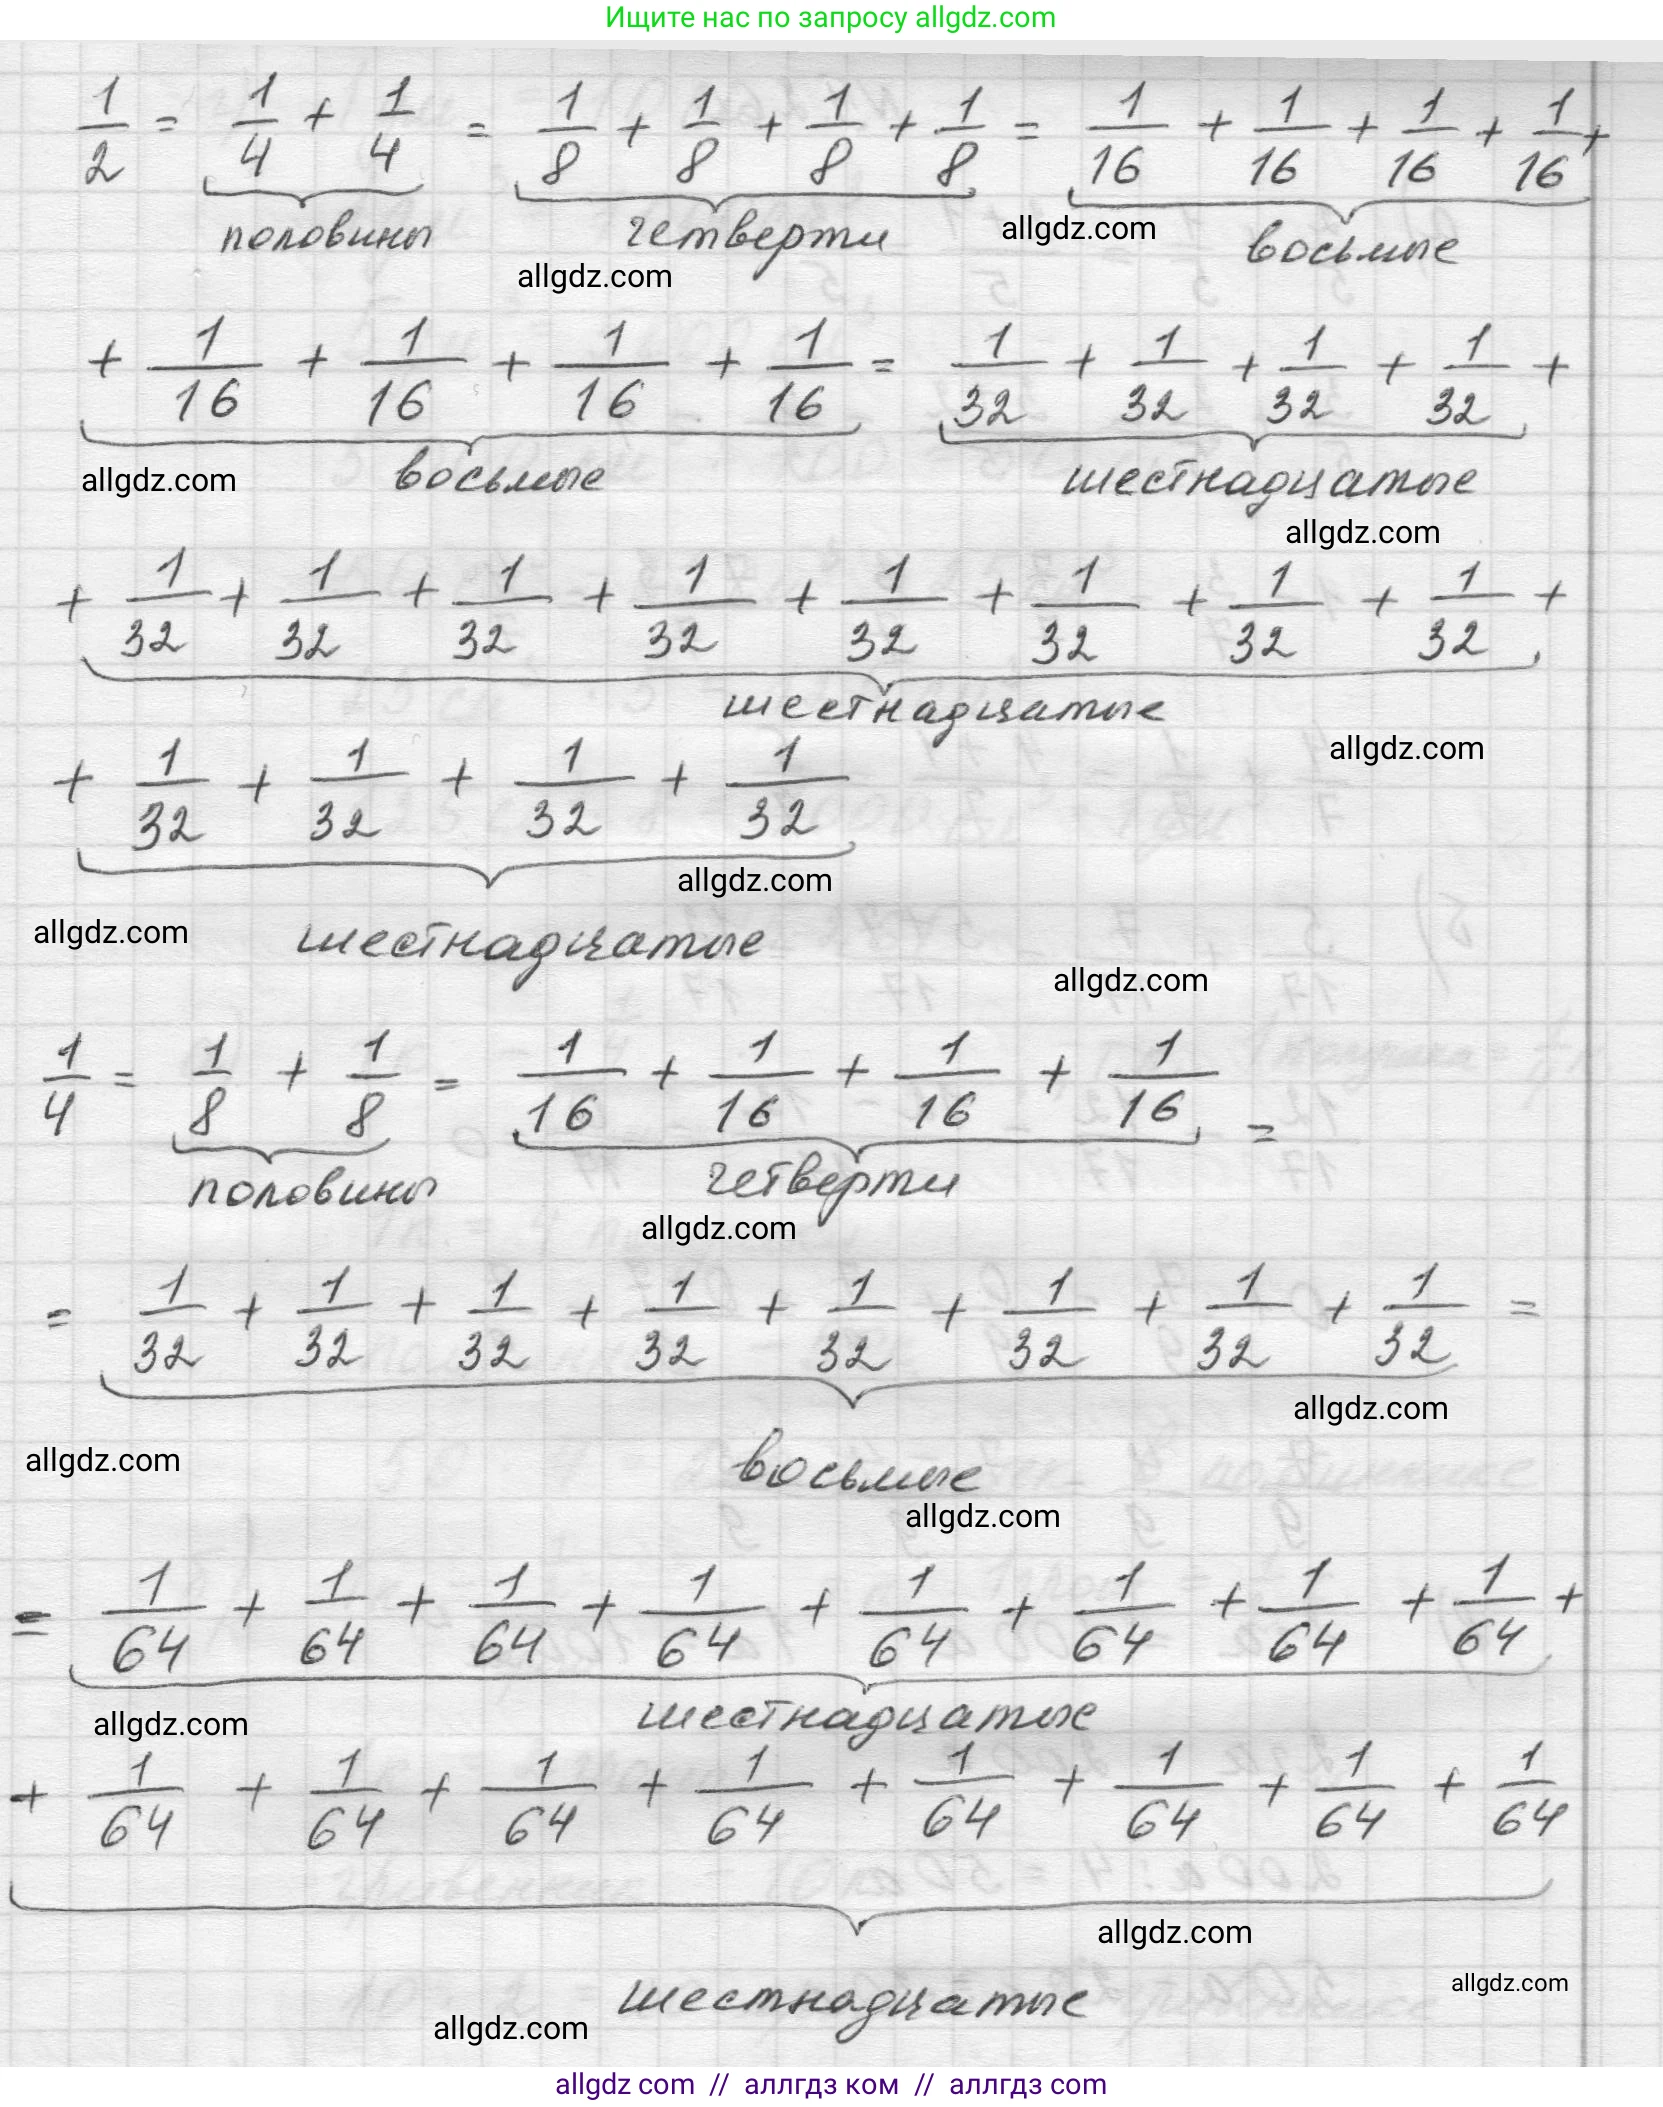 Ищите нас по запросу allgdz.com
1/2 = 1/4 + 1/4 = 1/8 + 1/8 + 1/8 + 1/8 = 1/16 + 1/16 + 1/16 + 1/16 +
половины четверти allgdz.com восьмые
allgdz.com
+ 1/16 + 1/16 + 1/16 + 1/16 = 1/32 + 1/32 + 1/32 + 1/32 +
allgdz.com восьмые шестнадцатые
allgdz.com
+ 1/32 + 1/32 + 1/32 + 1/32 + 1/32 + 1/32 + 1/32 + 1/32 +
шестнадцатые
allgdz.com
+ 1/32 + 1/32 + 1/32 + 1/32
allgdz.com
allgdz.com шестнадцатые
allgdz.com
1/4 = 1/8 + 1/8 = 1/16 + 1/16 + 1/16 + 1/16 =
половины четверти
allgdz.com
= 1/32 + 1/32 + 1/32 + 1/32 + 1/32 + 1/32 + 1/32 + 1/32 =
allgdz.com
allgdz.com восьмые
allgdz.com
= 1/64 + 1/64 + 1/64 + 1/64 + 1/64 + 1/64 + 1/64 + 1/64 +
allgdz.com шестнадцатые
+ 1/64 + 1/64 + 1/64 + 1/64 + 1/64 + 1/64 + 1/64 + 1/64
allgdz.com
allgdz.com
шестнадцатые
allgdz.com
allgdz com // аллгдз ком // аллгдз com